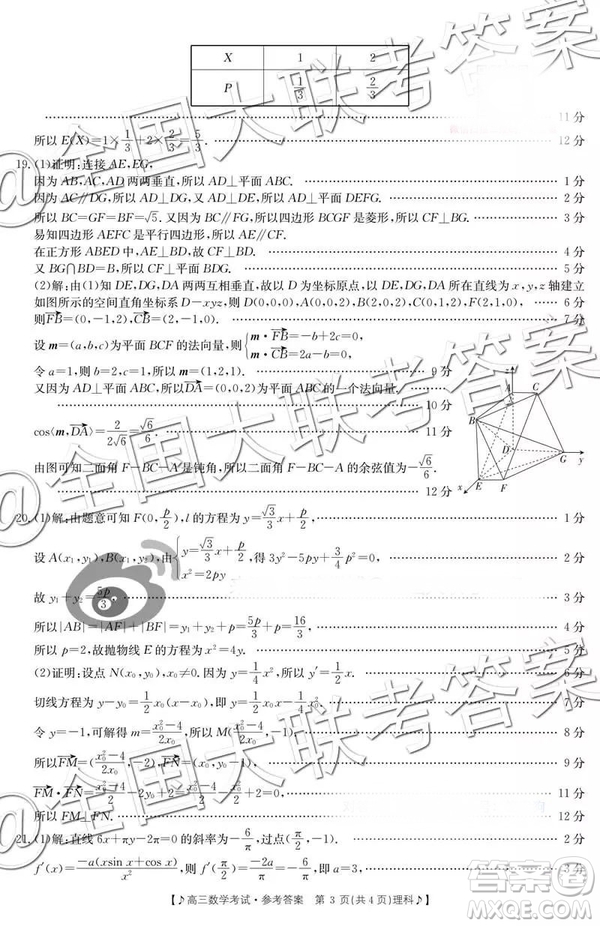 X 1 2
P 1/3 2/3
11 分
所以 E(X)=1×1/3+2×2/3=5/3. 12 分
19. (1)证明:连接 AE,EG,
因为 AB,AC,AD 两两垂直,所以 AD⊥平面 ABC. 1 分
因为 AC∥DG,所以 AD⊥DG,又 AD⊥DE,所以 AD⊥平面 DEFG. 2 分
所以 BC=GF=BF=√5. 又因为 BC∥FG,所以四边形 BCGF 是菱形,所以 CF⊥BG. 3 分
易知四边形 AEFC 是平行四边形,所以 AE∥CF.
在正方形 ABED 中,AE⊥BD,故 CF⊥BD. 4 分
又 BG∩BD=B,所以 CF⊥平面 BDG. 5 分
(2)解:由(1)知 DE,DG,DA 两两互相垂直,故以 D 为坐标原点,以 DE,DG,DA 所在直线为 x,y,z 轴建立
如图所示的空间直角坐标系 D-xyz,则 D(0,0,0),A(0,0,2),B(2,0,2),C(0,1,2),F(2,1,0), 6 分
则FB=(0,-1,2),CB=(2,-1,0). 7 分
设 m=(a,b,c)为平面 BCF 的法向量,则{m·FB=-b+2c=0, m·CB=2a-b=0,
令 a=1,则 b=2,c=1,所以 m=(1,2,1). 9 分
又因为 AD⊥平面 ABC,所以DA=(0,0,2)为平面 ABC 的一个法向量,
10 分
cos⟨m,DA⟩=2/(2√6)=√6/6. 11 分
由图可知二面角 F-BC-A 是钝角,所以二面角 F-BC-A 的余弦值为-√6/6.
12 分
z
A C
B
D
G y
x E F
20. (1)解:由题意可知 F(0,p/2),l 的方程为 y=√3/3 x+p/2, 1 分
设 A(x₁,y₁),B(x₂,y₂),由{y=√3/3 x+p/2, x²=2py 得 3y²-5py+3/4 p²=0, 2 分
故 y₁+y₂=5p/3, 3 分
所以|AB|=|AF|+|BF|=y₁+y₂+p=5p/3+p=16/3,
所以 p=2,故抛物线 E 的方程为 x²=4y. 5 分
(2)证明:设点 N(x₀,y₀),x₀≠0. 因为 y=1/4 x²,所以 y′=1/2 x. 6 分
切线方程为 y-y₀=1/2 x₀(x-x₀),即 y=1/2 x₀x-1/4 x₀². 7 分
令 y=-1,可解得 m=(x₀²-4)/2x₀,所以 M((x₀²-4)/2x₀,-1). 8 分
所以FM=((x₀²-4)/2x₀,-2),FN=(x₀,y₀-1), 9 分
FM·FN=(x₀²-4)/2-2y₀+2=(x₀²-4)/2-x₀²/2+2=0, 11 分
所以 FM⊥FN. 12 分
21. (1)解:直线 6x+πy-2π=0 的斜率为-6/π,过点(π/2,-1). 2 分
f′(x)=-a(xsin x+cos x)/x²,则 f′(π/2)=-2a/π=-6/π,即 a=3, 3 分
【♪高三数学考试·参考答案 第 3 页(共 4 页)理科♪】
@全国大联考答案
@全国大联考答案
@全国大联考答案